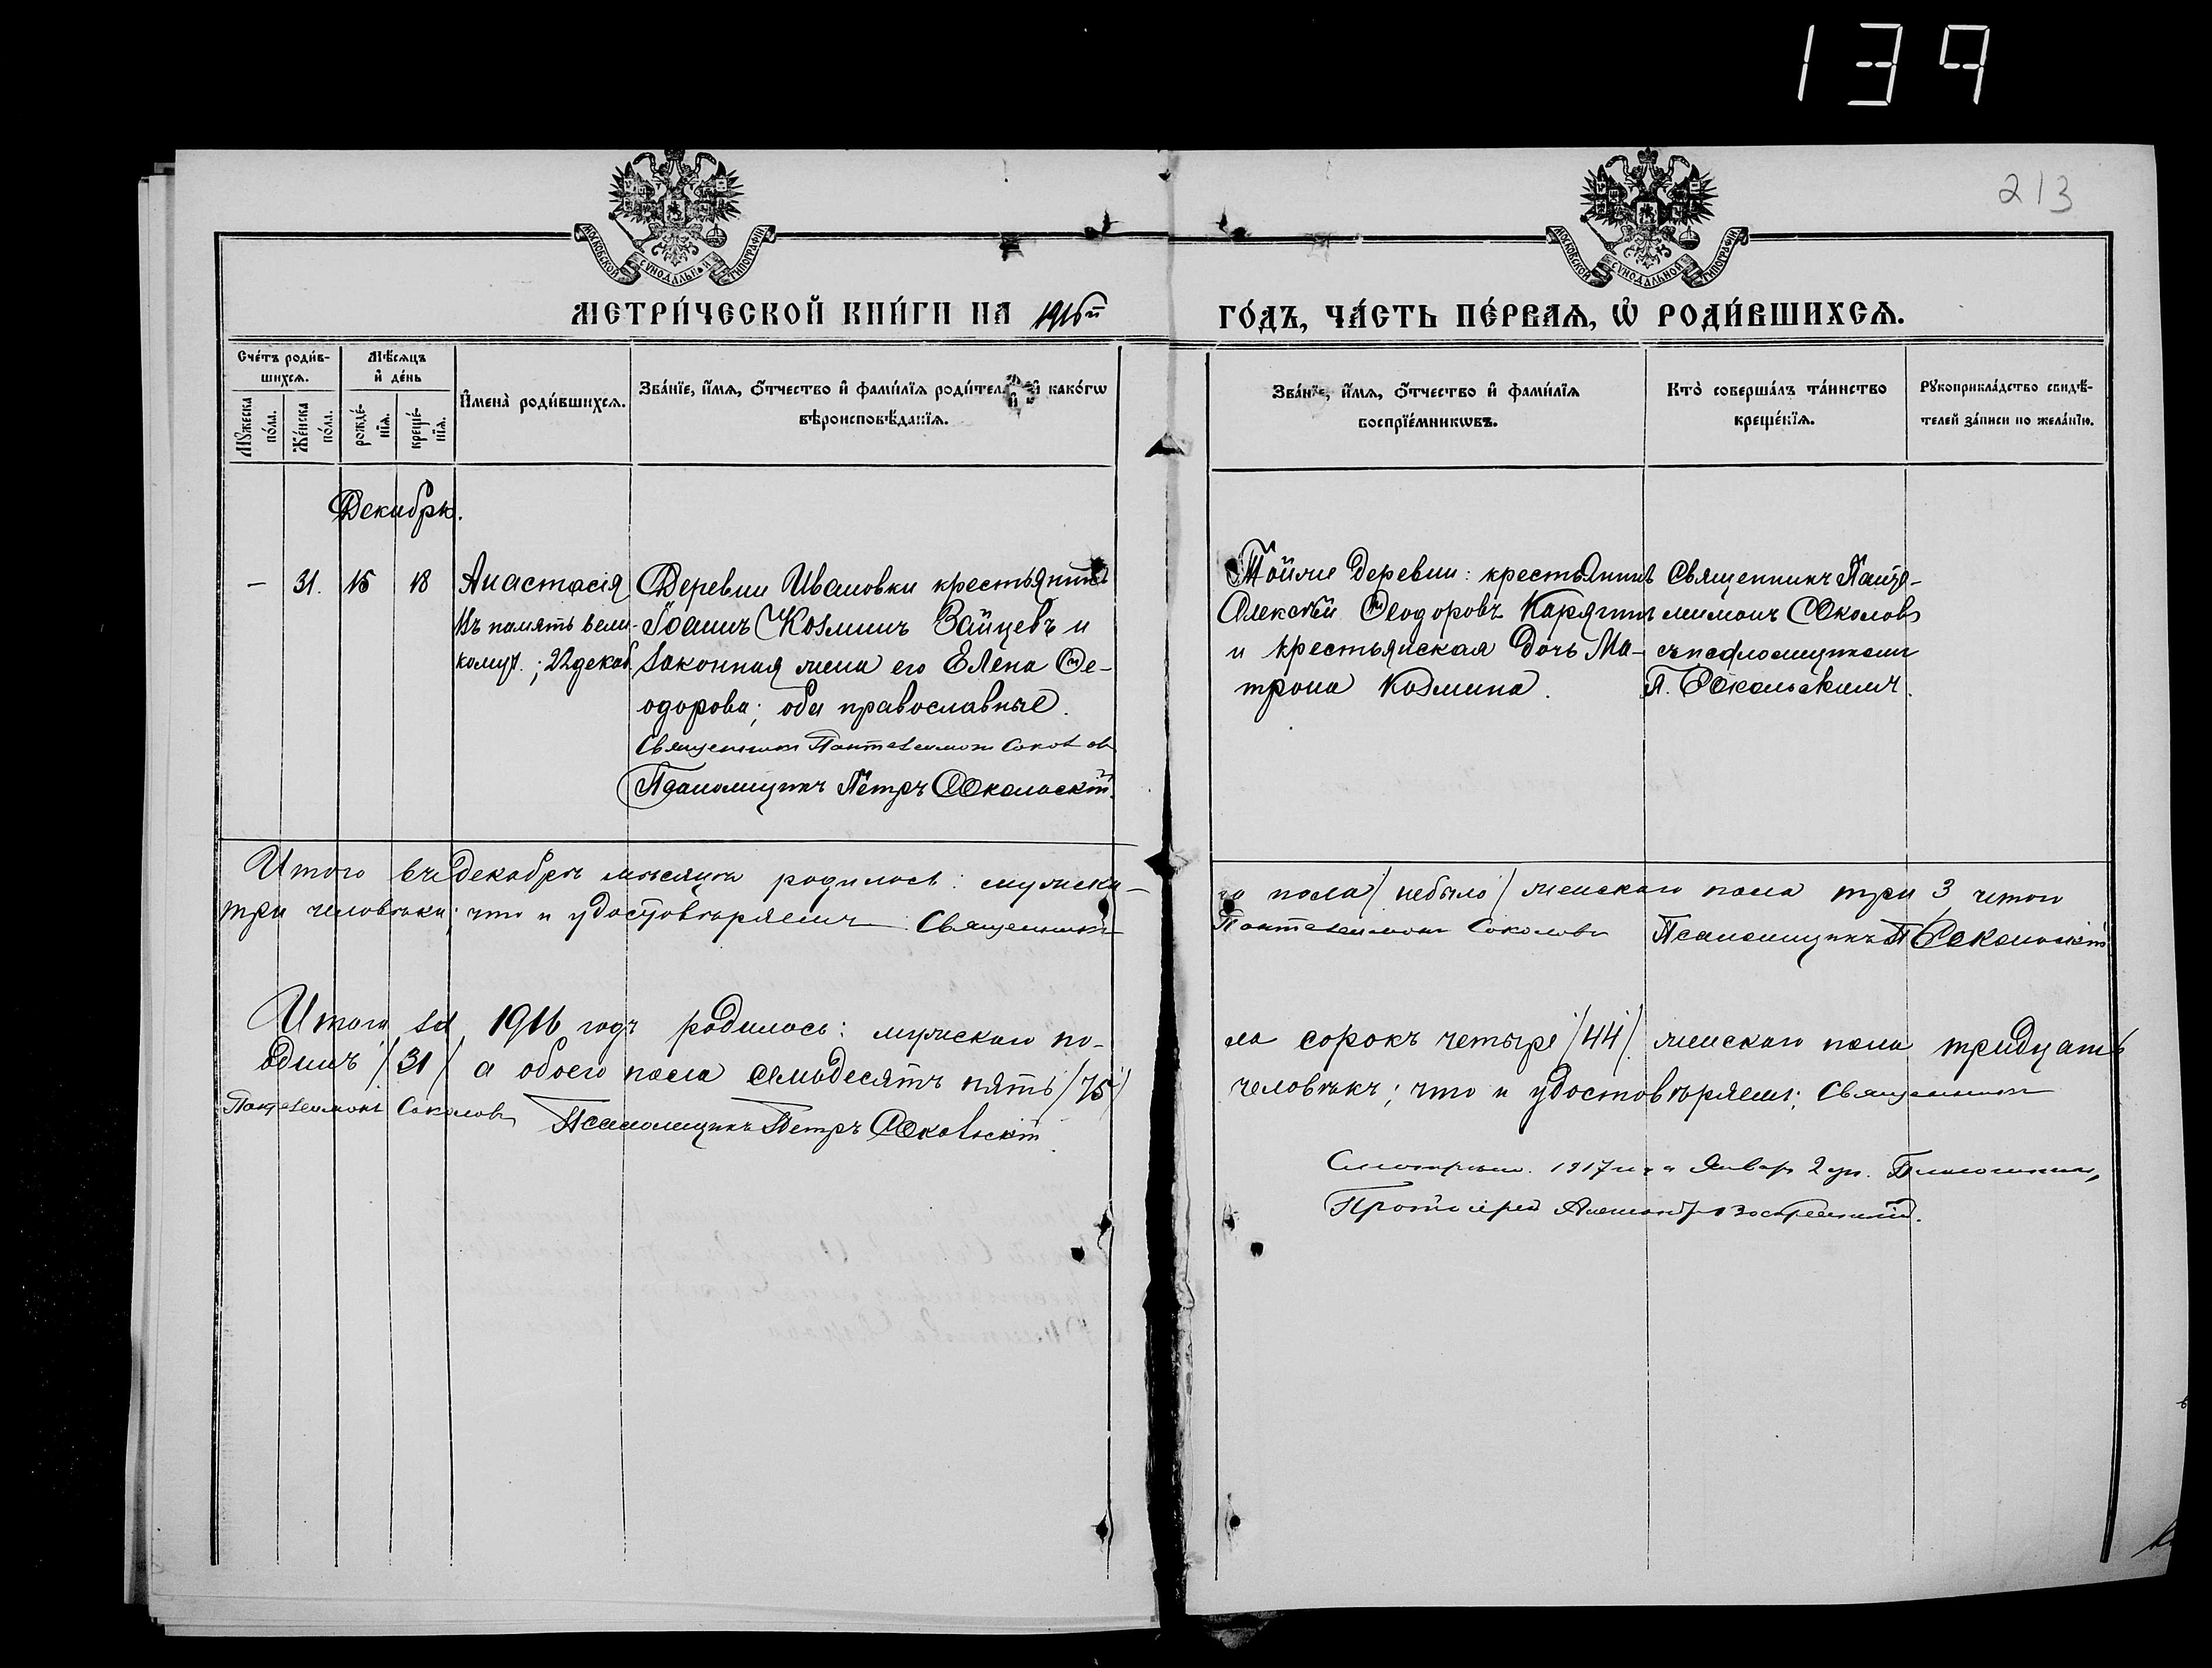 139
213
МОСКОВСКОЙ СѴНОДАЛЬНОЙ ТИПОГРАФІИ
МОСКОВСКОЙ СѴНОДАЛЬНОЙ ТИПОГРАФІИ
МЕТРИ́ЧЕСКОЙ КНИ́ГИ НА 1916й ГО́ДЪ, ЧА́СТЬ ПЕ́РВАѦ, Ѡ҆ РОДИ́ВШИХСѦ.
Сче́тъ роди́в-
шихсѧ.
Мѣ́сѧцъ
и҆ де́нь
Мꙋ́жеска
по́ла.
Же́нска
по́ла.
рожде́-
нїѧ.
креще́-
нїѧ.
И҆мена̀ роди́вшихсѧ.
Зва́нїе, и҆́мѧ, ѻ҆́тчество и҆ фами́лїѧ роди́телей, и҆ како́гѡ
вѣроисповѣ́данїѧ.
Зва́нїе, и҆́мѧ, ѻ҆́тчество и҆ фами́лїѧ
воспрїе́мникѡвъ.
Кто̀ соверша́лъ та́инство
креще́нїѧ.
Рꙋкоприкла́дство свидѣ́-
телей за́писи по жела́нїю.
Декабрь.
— 31. 15 18 Анастасія
Въ память вели-
комуч.; 22 декаб.
Деревни Ивановки крестьянинъ
Іоаннъ Козминъ Зайцевъ и
законная жена его Елена Ѳе-
одорова; оба православные.
Священникъ Пантелеимонъ Соколовъ
Псаломщикъ Петръ Сокольскій.
Той же деревни: крестьянинъ
Алексѣй Ѳеодоровъ Карягинъ
и крестьянская дочь Ма-
трона Козмина.
Священникъ Панте-
леимонъ Соколовъ
съ псаломщикомъ
П. Сокольскимъ.
Итого въ Декабрѣ мѣсяцѣ родилось: мужска-
го пола / небыло / женскаго пола три 3 итого
три человѣка; что и удостовѣряемъ: Священникъ
Пантелеимонъ Соколовъ Псаломщикъ П Сокольскій
Итого за 1916 годъ родилось: мужскаго по-
ла сорокъ четыре /44/. женскаго пола тридцать
одинъ /31/ а обоего пола семьдесятъ пять /75/
человѣкъ; что и удостовѣряемъ: Священникъ
Пантелеимонъ Соколовъ Псаломщикъ Петръ Сокольскій
1917 Январ 2
Протоіерей